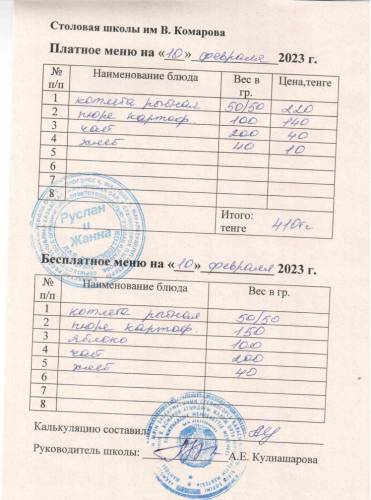 Столовая школы им В. Комарова
Платное меню на «10» февраля 2023 г.
№ п/п Наименование блюда Вес в гр. Цена,тенге
1 котлета рыбная 50/50 220
2 пюре картоф. 100 140
3 чай 200 40
4 хлеб 40 10
5
6
7
8
Итого: тенге 410тг
Руслан и Жанна
Бесплатное меню на «10» февраля 2023 г.
№ п/п Наименование блюда Вес в гр.
1 котлета рыбная 50/50
2 пюре картоф. 150
3 яблоко 100
4 чай 200
5 хлеб 40
6
7
8
Калькуляцию составил:
Руководитель школы: А.Е. Кулнашарова